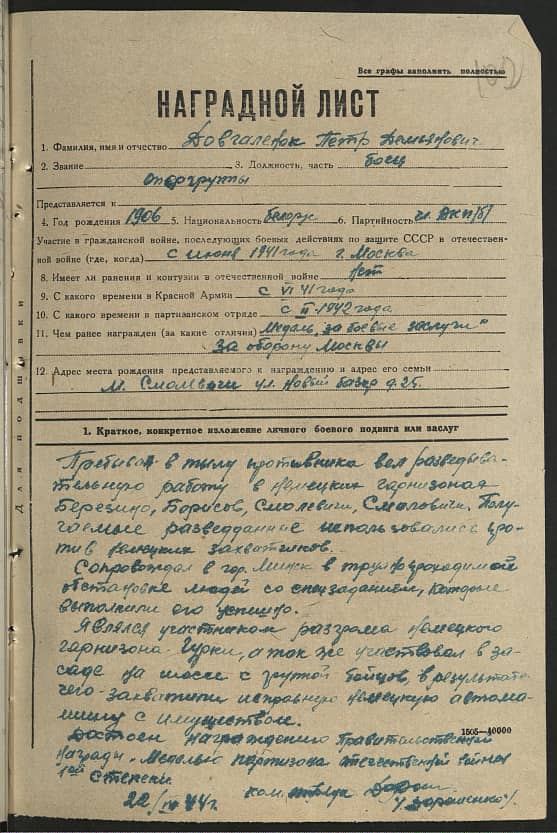 Все графы заполнить полностью
НАГРАДНОЙ ЛИСТ
1. Фамилия, имя и отчество Довгаленок Петр Демьянович
2. Звание 3. Должность, часть боец
опергруппы
Представляется к
4. Год рождения 1906 5. Национальность белорус 6. Партийность чл. ВКП/б/
Участие в гражданской войне, последующих боевых действиях по защите СССР в отечествен-
ной войне (где, когда) с июня 1941 года г. Москва
8. Имеет ли ранения и контузии в отечественной войне нет
9. С какого времени в Красной Армии с VI 41 года
10. С какого времени в партизанском отряде с II 1942 года
11. Чем ранее награжден (за какие отличия) Медаль „за боевые заслуги"
за оборону Москвы
12. Адрес места рождения представляемого к награждению и адрес его семьи
м. Смолевичи ул. Новый базар д. 25.
Для подшивки
1. Краткое, конкретное изложение личного боевого подвига или заслуг
Пребывая в тылу противника вел разведыва-
тельную работу в немецких гарнизонах
Березино, Борисов, Смолевичи, Смиловичи. Полу-
чаемые разведданные использовались про-
тив немецких захватчиков.
Сопровождал в гор. Минск в труднопроходимой
обстановке людей со спецзаданием, которые
выполнили его успешно.
Являлся участником разгрома немецкого
гарнизона Гурки, а так же участвовал в за-
саде на шоссе с групой бойцов, в результате
чего захватили исправную немецкую автома-
шину с имуществом.
1505—40000
Достоен награждению Правительственной
награды - Медалью партизана отечественной войны
1ой степени.
22/IV 44 г. ком. отряда
/Дорошенко/